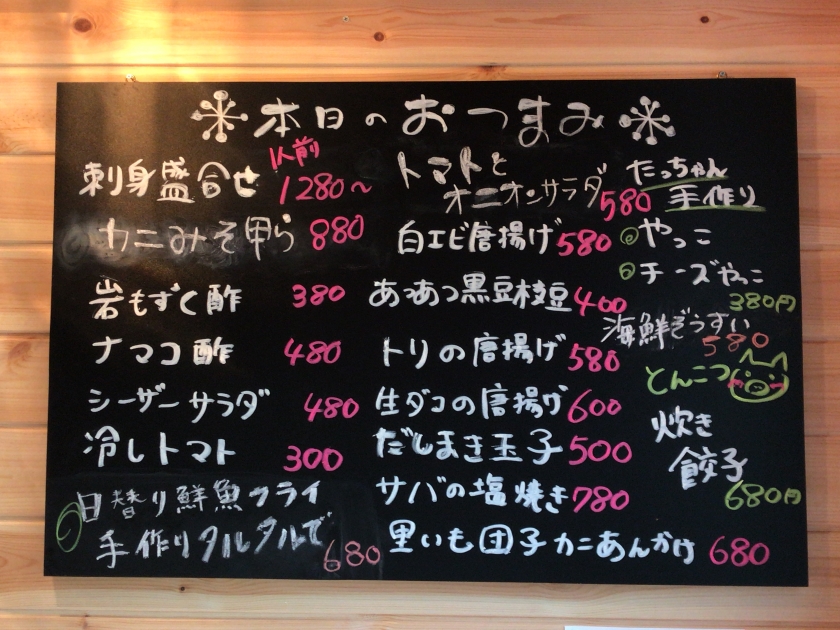 本日のおつまみ
刺身盛合せ 1人前 1280〜
カニみそ甲ら 880
岩もずく酢 380
ナマコ酢 480
シーザーサラダ 480
冷しトマト 300
日替り鮮魚フライ
手作りタルタルで 680
トマトと
オニオンサラダ 580
白エビ唐揚げ 580
あつあつ黒豆枝豆 400
トリの唐揚げ 580
生ダコの唐揚げ 600
だしまき玉子 500
サバの塩焼き 780
里いも団子カニあんかけ 680
たっちゃん
手作り
◎やっこ
◎チーズやっこ
380円
海鮮ぞうすい
580
とんこつ
炊き
餃子
680円